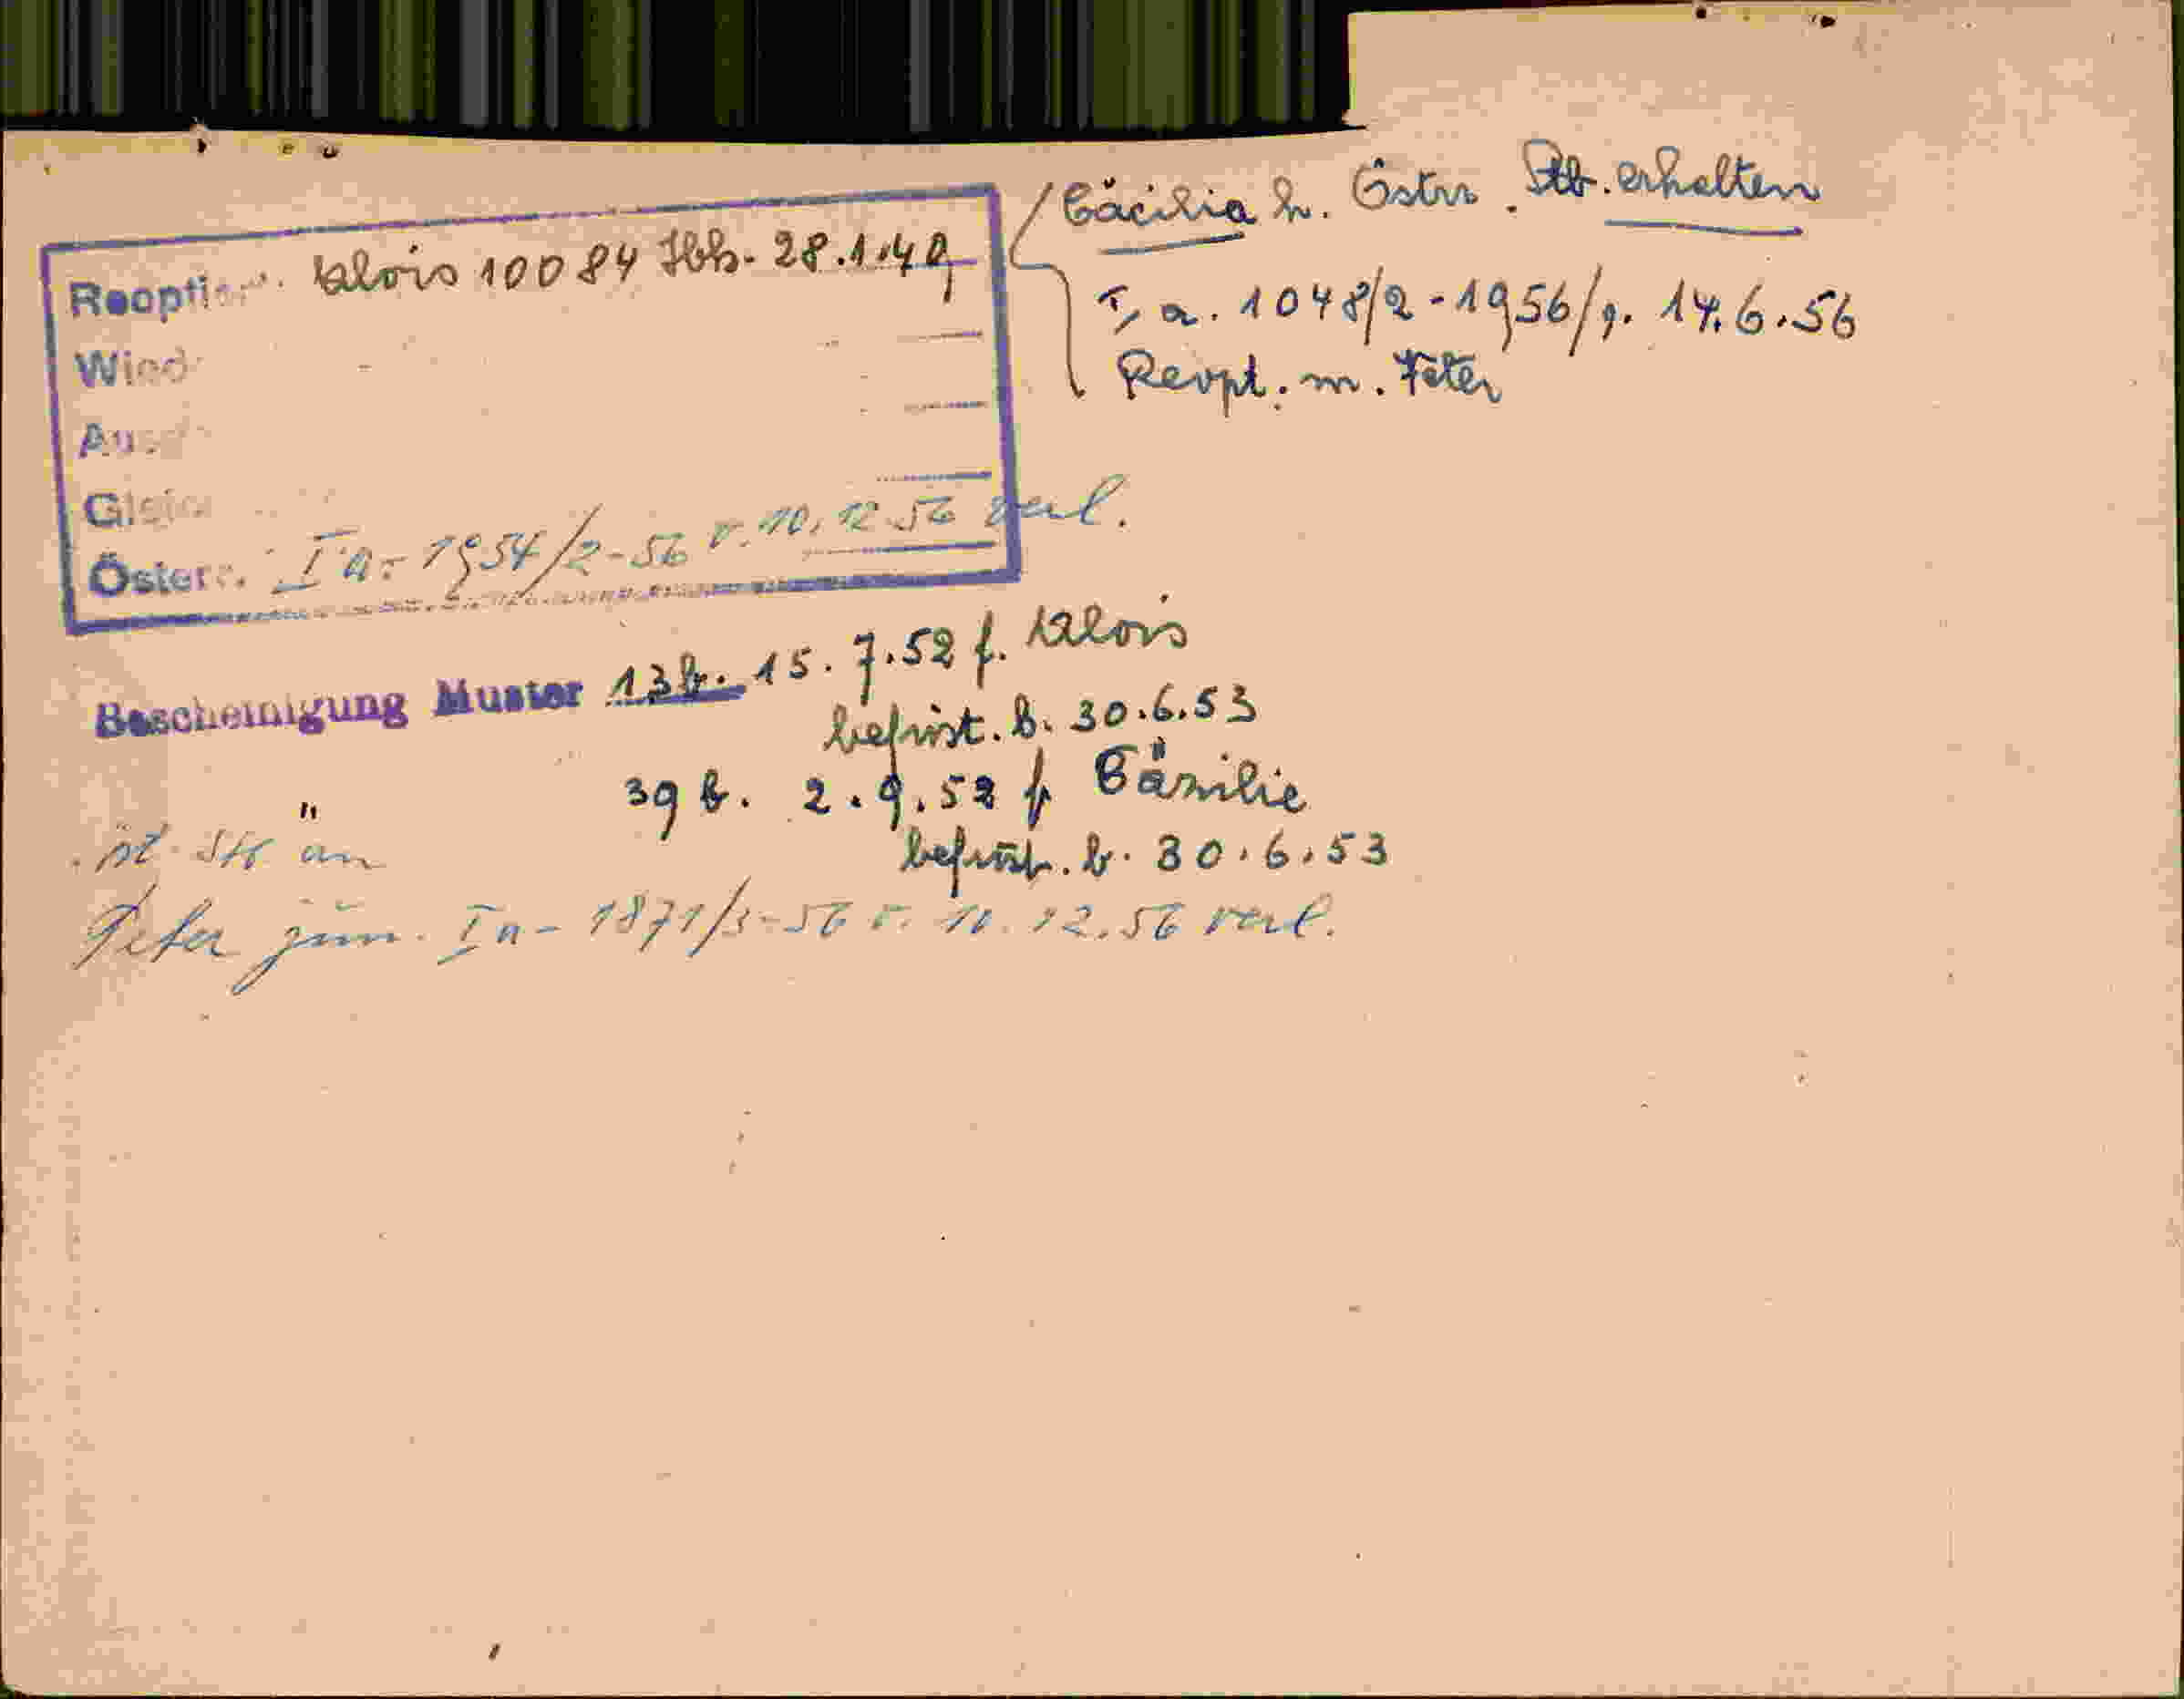 Reoption. Alois 10084 Ibk. 28.1.49
Wied
Aus
Gleic
Österr. Ia-1954/2-56 v. 10.12.56 verl.
Cäcilia h. Östr. Stb. erhalten
I a. 1048/2-1956/ 14.6.56
Reopt. m. Peter
Bescheinigung Muster 13b. 15.7.52 f. Alois
befrist. b. 30.6.53
" 39b. 2.9.52 f. Cäzilie
befrist. b. 30.6.53
öst. Stb an
Peter jun. Ia-1871/3-56 v. 10.12.56 verl.